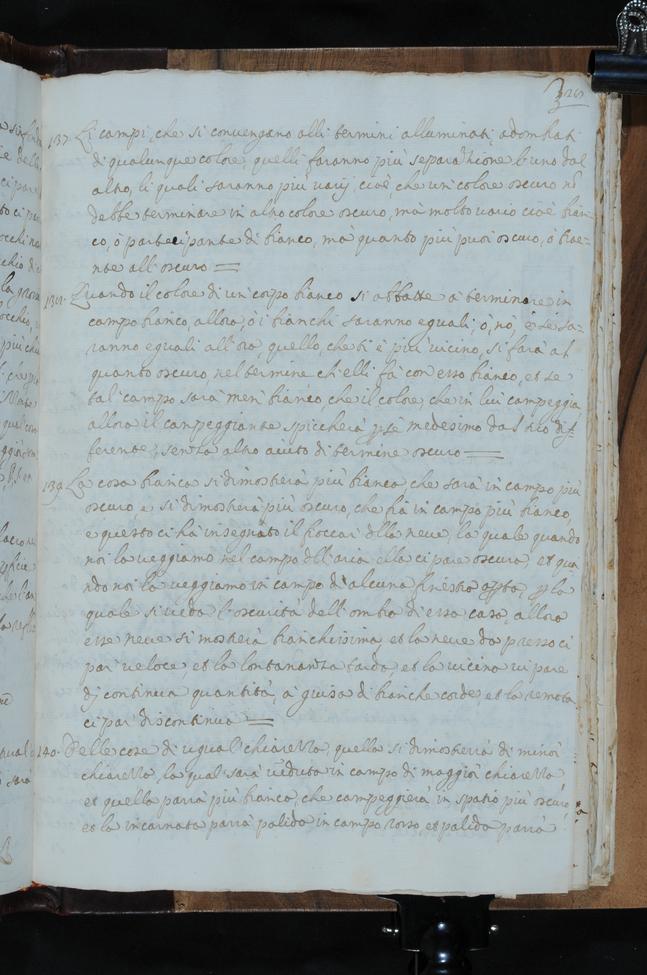 137. Li campi, che si convengano alli termini alluminati, adombrati
di qualunque colore, quelli faranno più separathione l'uno dal
altro, li quali saranno più varij, cioè, che un colore oscuro nō
debbe terminare in altro colore oscuro, mà molto vario cioè bian=
co, ò partecipante di bianco, mà quanto più puoi oscuro, ò trae=
nte all'oscuro =
138. Quando il colore di un corpo bianco si abbatte à terminare in
campo bianco, allora, ò i bianchi saranno eguali, ò, nò, e se sa-
ranno eguali all'ora, quello, che ti è più vicino, si farà al
quanto oscuro, nel termine ch'elli fà con esso bianco, et se
tal campo sarà men bianco, che il colore, che in lui campeggia
allora il campeggiante spicherà p se medesimo dal suo dif
ferente, senza altro aiuto di termine oscuro =
139. La cosa bianca si dimosterà più bianca, che sarà in campo più
oscuro, e si dimosterà più oscuro, che fia in campo più bianco,
e questo ci hà insegnato il fioccar della neve, la quale quando
noi la veggiamo nel campo dell'aria ella ci pare oscura, et qua
ndo noi la veggiamo in campo d'alcuna finestra apta, p la
quale si veda l'oscurità dell'ombra di essa casa, allora
essa neve si mosterà bianchissima, et la neve da presso ci
par veloce, et la lontananza tarda, et la vicina vi pare
di continua quantità, à guisa di bianche corde, et la remota
ci par discontinua =
140. Delle cose di ugual' chiarezza, quella si dimosterà di minor
chiarezza, la qual sarà veduta in campo di maggior chiarezza
et quella parrà più bianca, che campeggierà in spatio più oscuro
et la incarnata parrà palida in campo rosso, et palida parrà